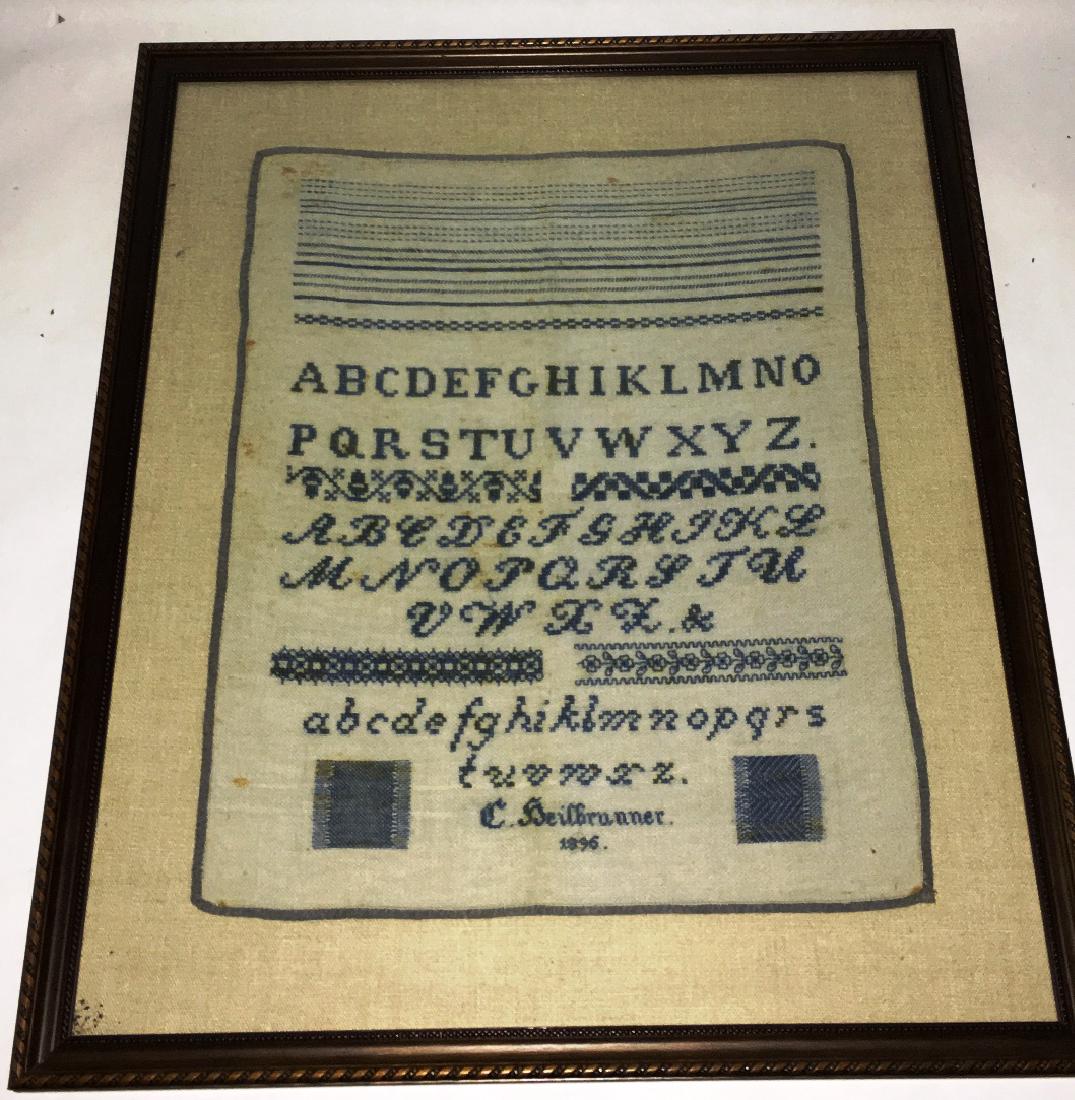 ABCDEFGHIKLMNO
PQRSTUVWXYZ.
ABCDEFGHIKL
MNOPQRSTU
VWXZ.&
abcdefghiklmnopqrs
tuvwxz.
C. Heilbrunner.
1896.